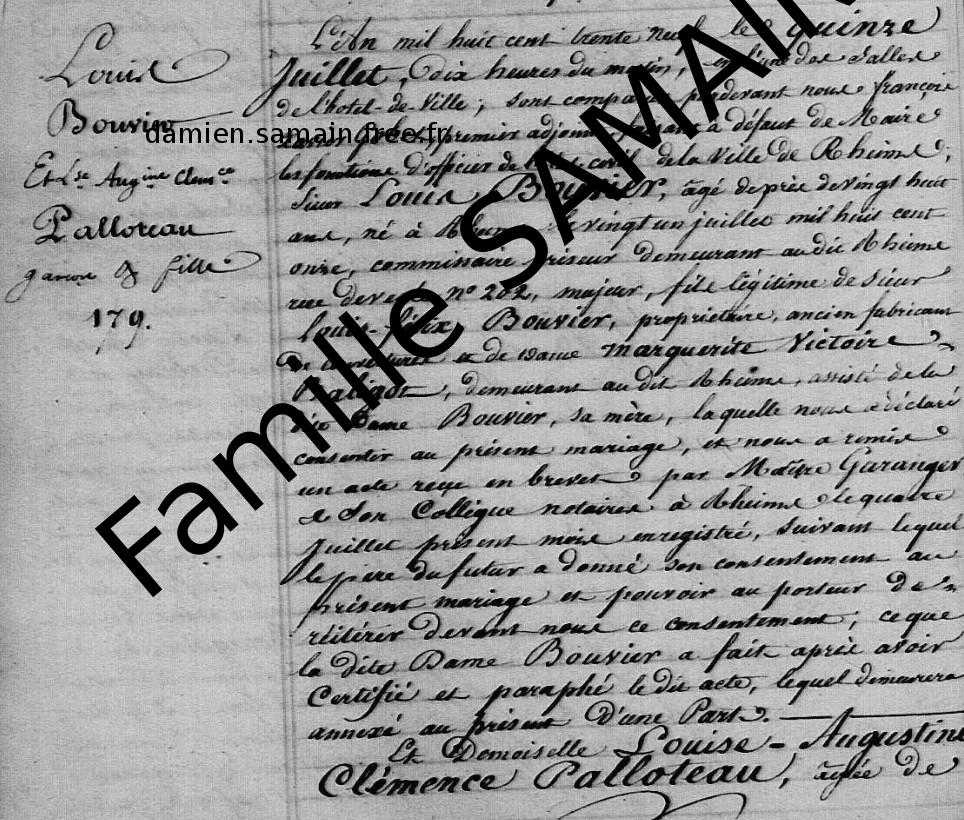 Louis
Bouvier
damien.samain.free.fr
Et Lse Augine Clemce
Palloteau
garcon & fille
179.
L'An mil huit cent trente neuf le quinze
Juillet, dix heures du matin, en l'une des Salles
de l'hotel-de-Ville; sont comparus pardevant nous françois
premier adjoint, à défaut de Maire
les fonctions d'officier de l'état civil de la Ville de Rheims,
Sieur Louis Bouvier, âgé de près de vingt huit
ans, né à Rheims le vingt un juillet mil huit cent
onze, commissaire priseur demeurant audit Rheims
rue de n° 202, majeur, fils légitime de Sieur
Louis-félix Bouvier, propriétaire, ancien fabricant
de couvertures et de Dame Marguerite Victoire
Baligot, demeurant audit Rheims, assisté de la
dite Dame Bouvier, sa mère, laquelle nous a déclaré
consentir au présent mariage, et nous a remis
un acte reçu en brevet par Maître Guranger
& Son Collègue notaires à Rheims le quatre
Juillet présent mois enregistré, suivant lequel
le père du futur a donné son consentement au
présent mariage et pouvoir au porteur de
réitérer devant nous ce consentement; ce que
la dite Dame Bouvier a fait après avoir
Certifié et paraphé le dit acte, lequel demeurera
annexé au présent D'une Part.
Et Demoiselle Louise-Augustine
Clémence Palloteau, âgée de
Famille SAMAIN